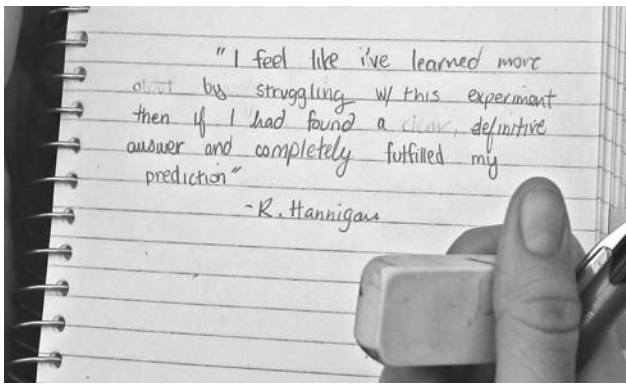 "I feel like i've learned more
about by struggling w/ this experiment
then if I had found a clear, definitive
answer and completely fulfilled my
prediction"
-R. Hannigan